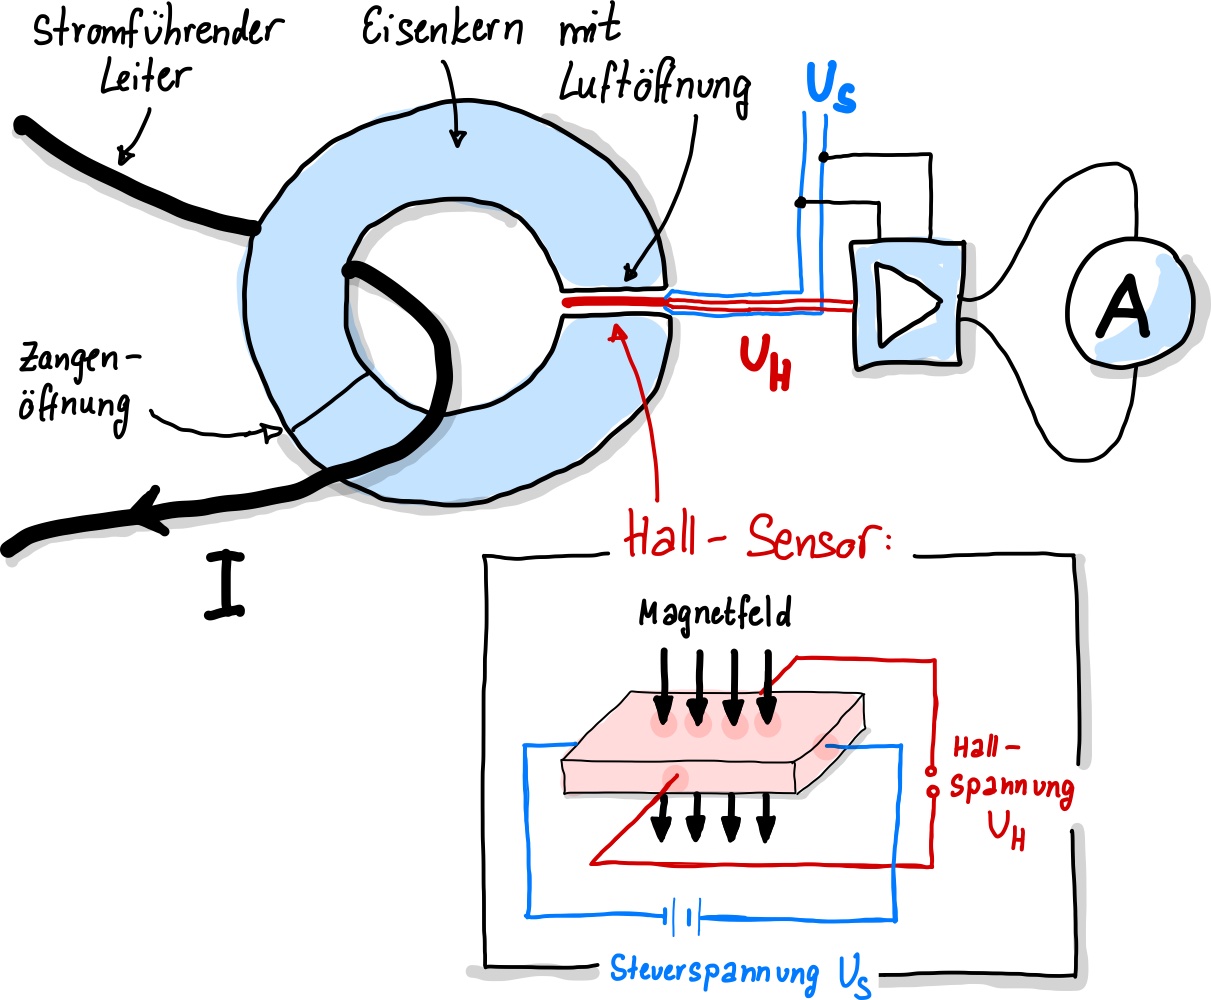 Stromführender
Leiter
Eisenkern mit
Luftöffnung
U_S
Zangen-
öffnung
U_H
A
I
Hall-Sensor:
Magnetfeld
Hall-
spannung
U_H
Steuerspannung U_S